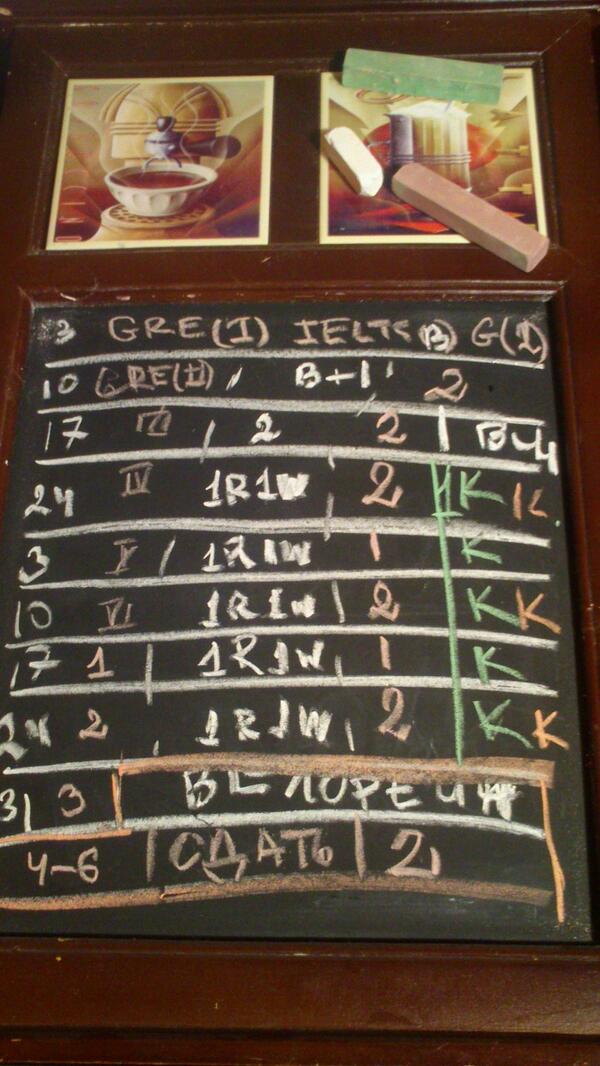 3 GRE(I) IELTS(B) G(I)
10 GRE(II), B+1, 2
17 III, 2 2 | B-4
24 IV 1R1W 2 K K
3 V / 1R1W 1 K
10 VI 1R1W | 2 K K
17 1 | 1R1W, 1 K
24 2 1R1W, 2 K K
31 3
4-6 | СДАТЬ | 2